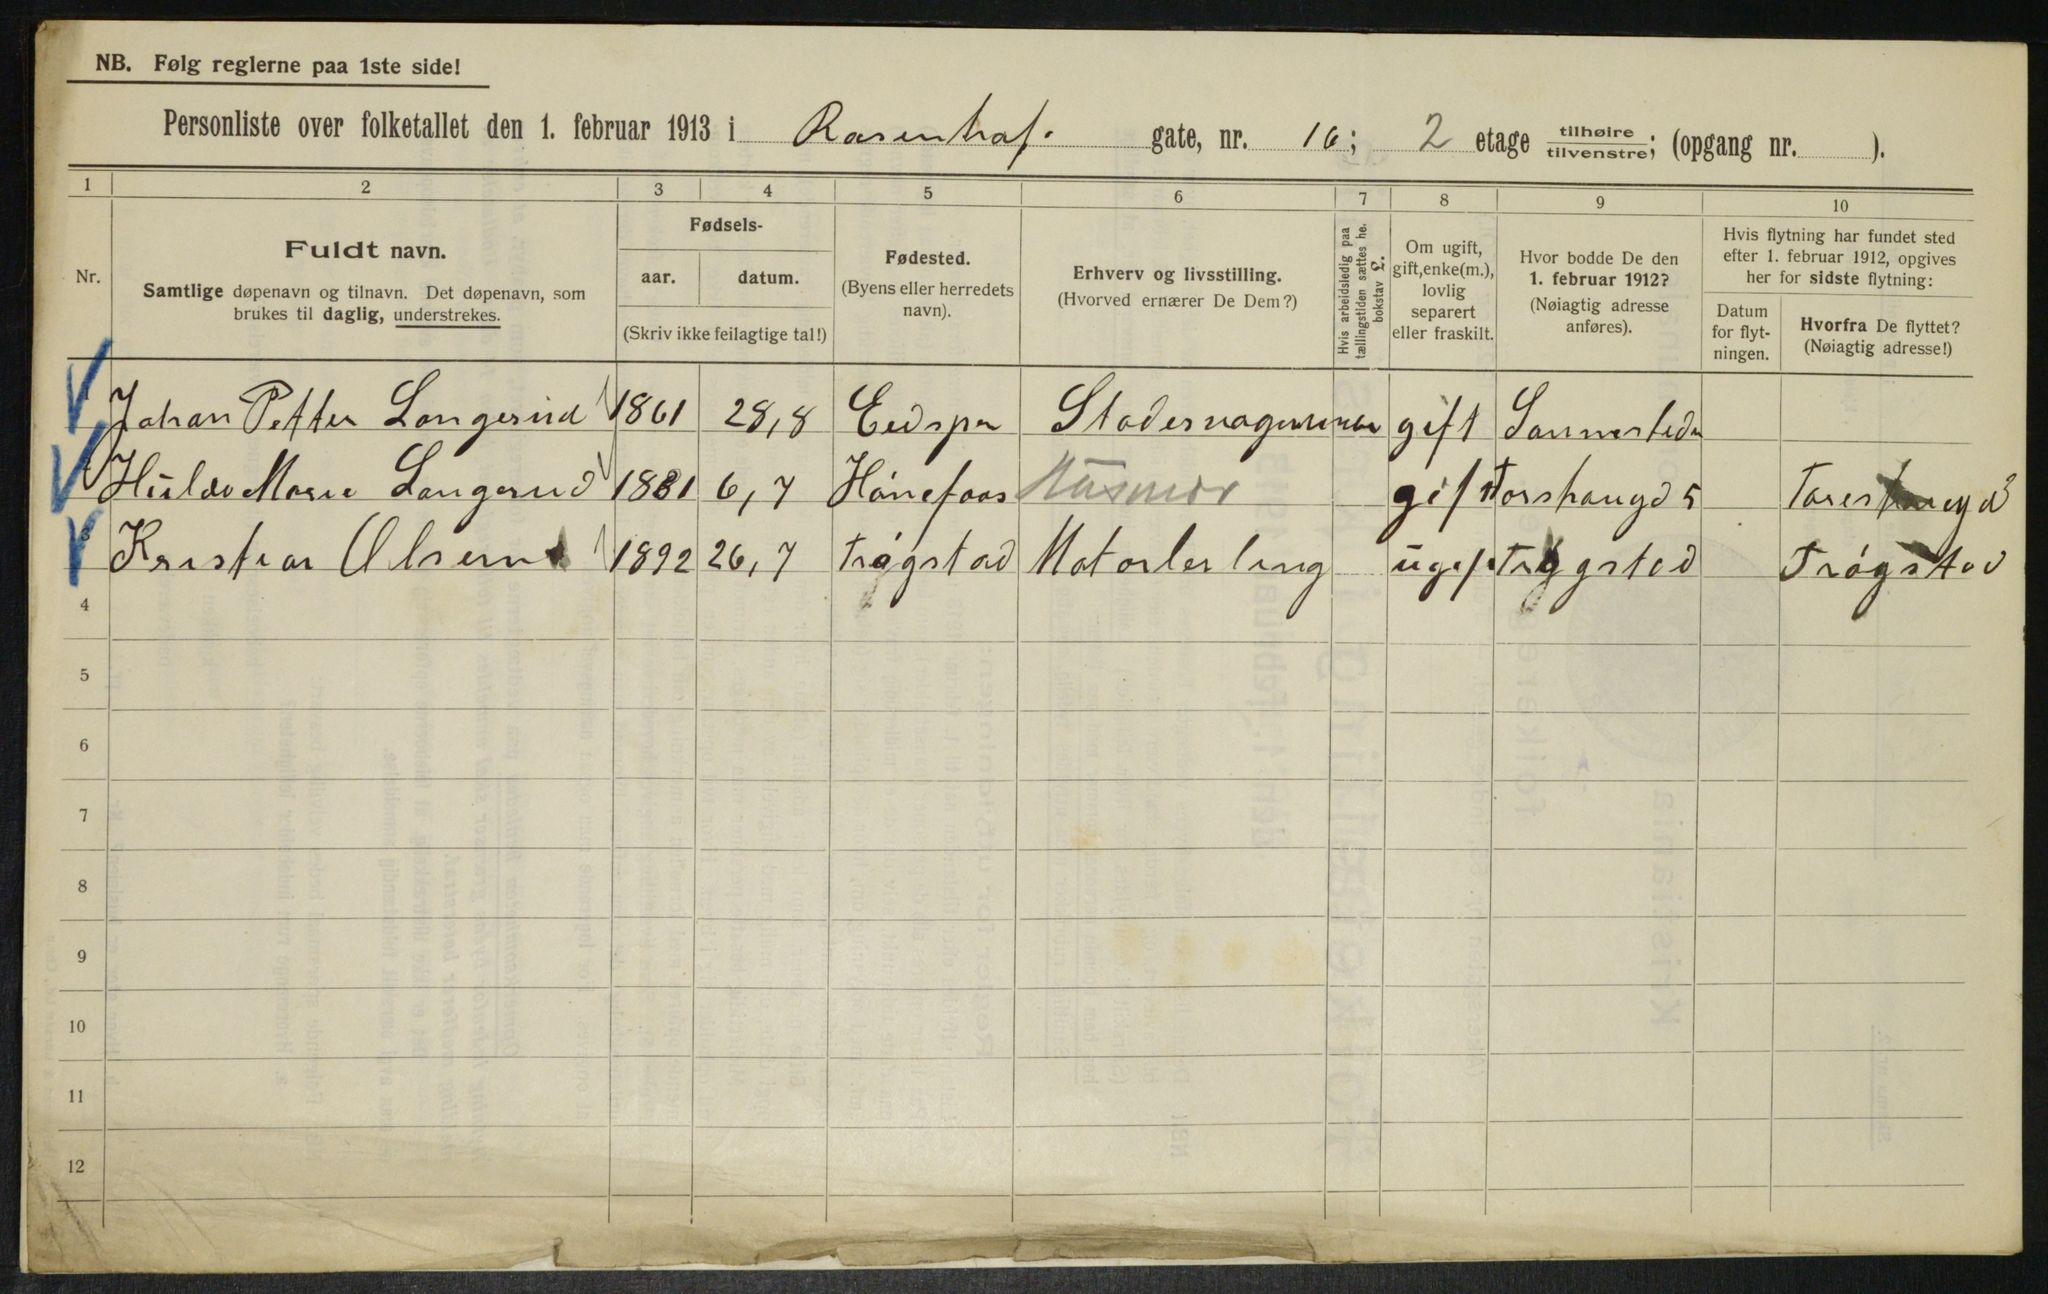 NB. Følg reglerne paa 1ste side!
Personliste over folketallet den 1. februar 1913 i Rosenhof gate, nr. 16; 2 etage tilhøire/tilvenstre; (opgang nr. ).
1 2 3 4 5 6 7 8 9 10
Nr.
Fuldt navn.
Samtlige døpenavn og tilnavn. Det døpenavn, som
brukes til daglig, understrekes.
Fødsels-
aar. datum.
(Skriv ikke feilagtige tal!)
Fødested.
(Byens eller herredets
navn).
Erhverv og livsstilling.
(Hvorved ernærer De Dem?)
Hvis arbeidsledig paa
tællingstiden sættes he.
bokstav L.
Om ugift,
gift, enke(m.),
lovlig
separert
eller fraskilt.
Hvor bodde De den
1. februar 1912?
(Nøiagtig adresse
anføres).
Hvis flytning har fundet sted
efter 1. februar 1912, opgives
her for sidste flytning:
Datum
for flyt-
ningen.
Hvorfra De flyttet?
(Nøiagtig adresse!)
Johan Petter Langerud 1861 28,8 gift
Hulda Marie Langerud 1881 6,7 Hønefoos Husmor gift
3 Kristian Olsen 1892 26,7 Trøgstad Motorlerling ugift Trøgstad Trøgstad
4
5
6
7
8
9
10
11
12